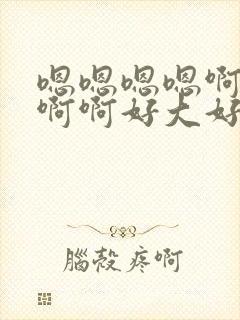 嗯嗯嗯嗯啊
啊啊好大好
腦殼疼啊